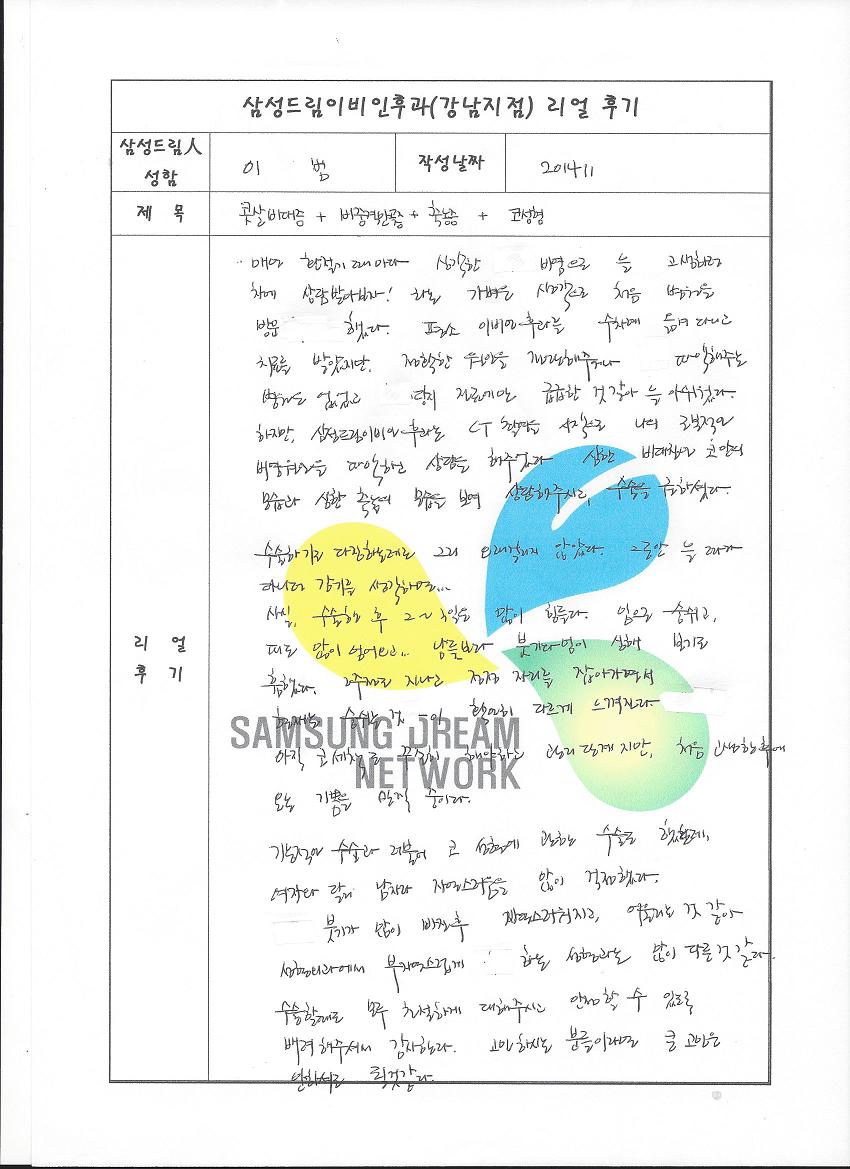 삼성드림이비인후과(강남지점) 리얼 후기
삼성드림人 성함
이 범
작성날짜
2014 11
제 목
콧살비대증 + 비중격만곡증 + 축농증 + 코성형
리 얼 후 기
매번 환절기 때마다 심각한 비염으로 늘 고생하던
차에 상담받아보자! 하는 가벼운 생각으로 처음 병원을
방문 했었다. 평소 이비인후과를 수차례 들려 다니고
치료를 받았지만, 정확한 원인을 진단해주거나 파악해주는
병원은 없었고 단지 치료에만 급급한 것 같아 늘 아쉬웠다.
하지만, 삼성드림이비인후과는 CT 촬영을 시작으로 나의 근본적인
비염원인을 파악하고 상담을 해주었다. 심한 비대칭인 코안의
모습과 심한 축농의 모습을 보며 상담해주시고, 수술을 권하셨다.
수술하기로 다짐하는데로 그리 오래걸리지 않았다. 그동안 늘 달고
다니던 감기를 생각하면...
사실, 수술한 후 2~3일은 많이 힘들다. 입으로 숨쉬고,
피도 많이 넘어오고.. 남들보다 붓기라던이 심해 보기도
흉했다. 2주정도 지나고 점점 자리를 잡아가면서
현재는 숨쉬는 것 이 확연히 다르게 느껴진다.
SAMSUNG DREAM
NETWORK
아직 코세척을 꾸준히 해야하는 관리 단계 지만, 처음 고생한 후에
오는 기쁨을 만끽 중이다.
기능적인 수술과 더불어 코 성형에 관한 수술도 했는데,
여자와 달리 남자라 자연스러움을 많이 걱정했다.
붓기가 많이 빠진후 자연스러워지고, 어울리는 것 같아
성형외과에서 부자연스럽게 하는 성형과는 많이 다른것 같다.
수술할때도 모두 친절하게 대해주시고 안정할 수 있도록
배려 해주셔서 감사하다. 고민하시는 분들이라면 큰 고민은
안하셔도 될것같다.